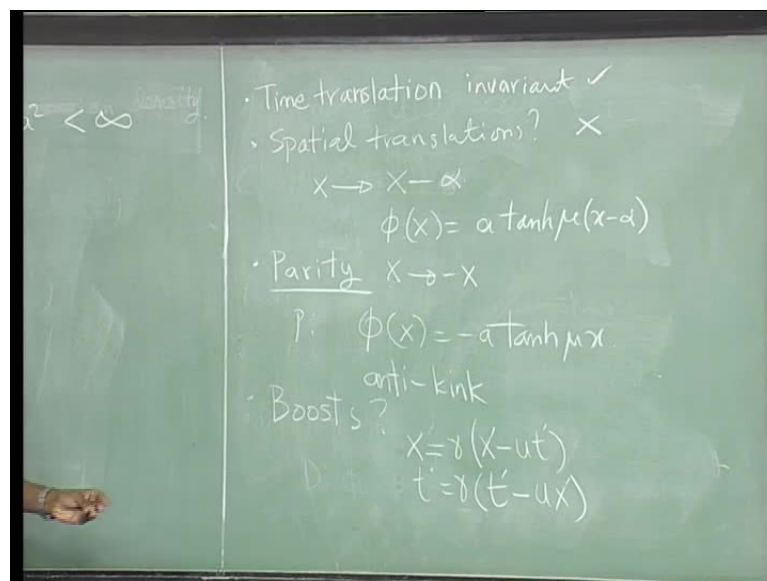 a² < ∞
· Time translation invariant ✓
· Spatial translations? ×
x → x − α
ϕ(x) = a tanh μ(x−α)
· Parity x → −x
P: ϕ(x) = −a tanh μx
anti-kink
· Boosts?
x = γ(x′ − ut′)
t = γ(t′ − ux′)